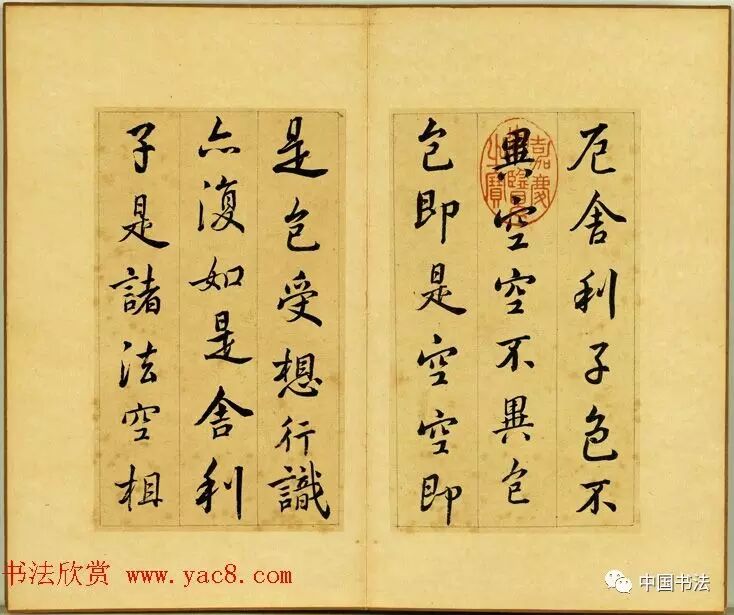 厄舍利子色不
異空空不異色
色即是空空即
是色受想行識
亦復如是舍利
子是諸法空相
嘉慶御覽之寶
书法欣赏 www.yac8.com
中国书法